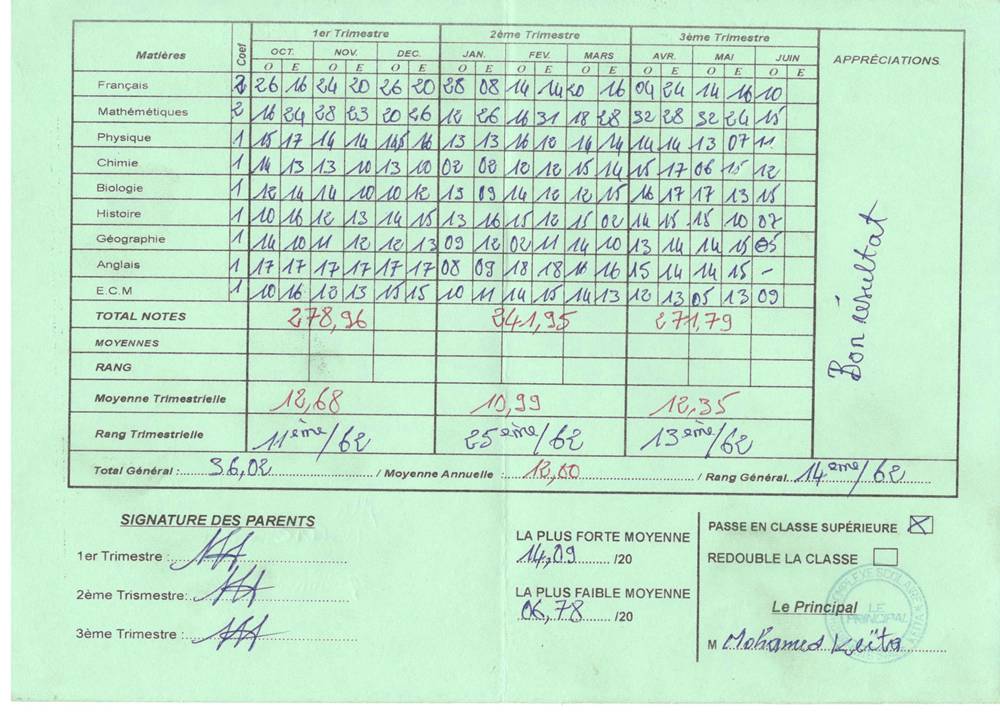 1er Trimestre 2ème Trimestre 3ème Trimestre
Matières Coef OCT. NOV. DEC. JAN. FEV. MARS AVR. MAI JUIN APPRÉCIATIONS
O E O E O E O E O E O E O E O E O E
Français 2 26 16 24 20 26 20 28 08 14 14 20 16 04 24 14 16 10
Mathémétiques 2 16 24 28 23 20 26 12 26 16 31 18 28 32 28 32 24 15
Physique 1 15 17 14 14 14,5 16 13 13 16 12 14 14 14 14 13 07 11
Chimie 1 14 13 13 10 13 10 02 02 12 12 15 14 15 17 06 15 12
Biologie 1 12 14 14 10 10 12 13 09 14 12 12 15 16 17 17 13 15
Histoire 1 10 16 12 13 14 15 13 16 15 12 15 02 14 15 15 10 07
Géographie 1 14 10 11 12 12 13 09 12 02 11 14 10 13 14 14 15 05
Anglais 1 17 17 17 17 17 17 08 09 18 18 16 16 15 14 14 15 -
E.C.M 1 10 16 12 13 15 15 10 11 14 15 14 13 12 13 05 13 09
Bon résultat
TOTAL NOTES 278,96 241,95 271,79
MOYENNES
RANG
Moyenne Trimestrielle 12,68 10,99 12,35
Rang Trimestrielle 11ème/62 25ème/62 13ème/62
Total Général : 36,02 / Moyenne Annuelle : 12,00 / Rang Général 14ème/62
SIGNATURE DES PARENTS
1er Trimestre :
2ème Trismestre:
3ème Trimestre :
LA PLUS FORTE MOYENNE
14,09 /20
LA PLUS FAIBLE MOYENNE
06,78 /20
PASSE EN CLASSE SUPÉRIEURE
REDOUBLE LA CLASSE
Le Principal
LE PRINCIPAL
M Mohamed Keïta